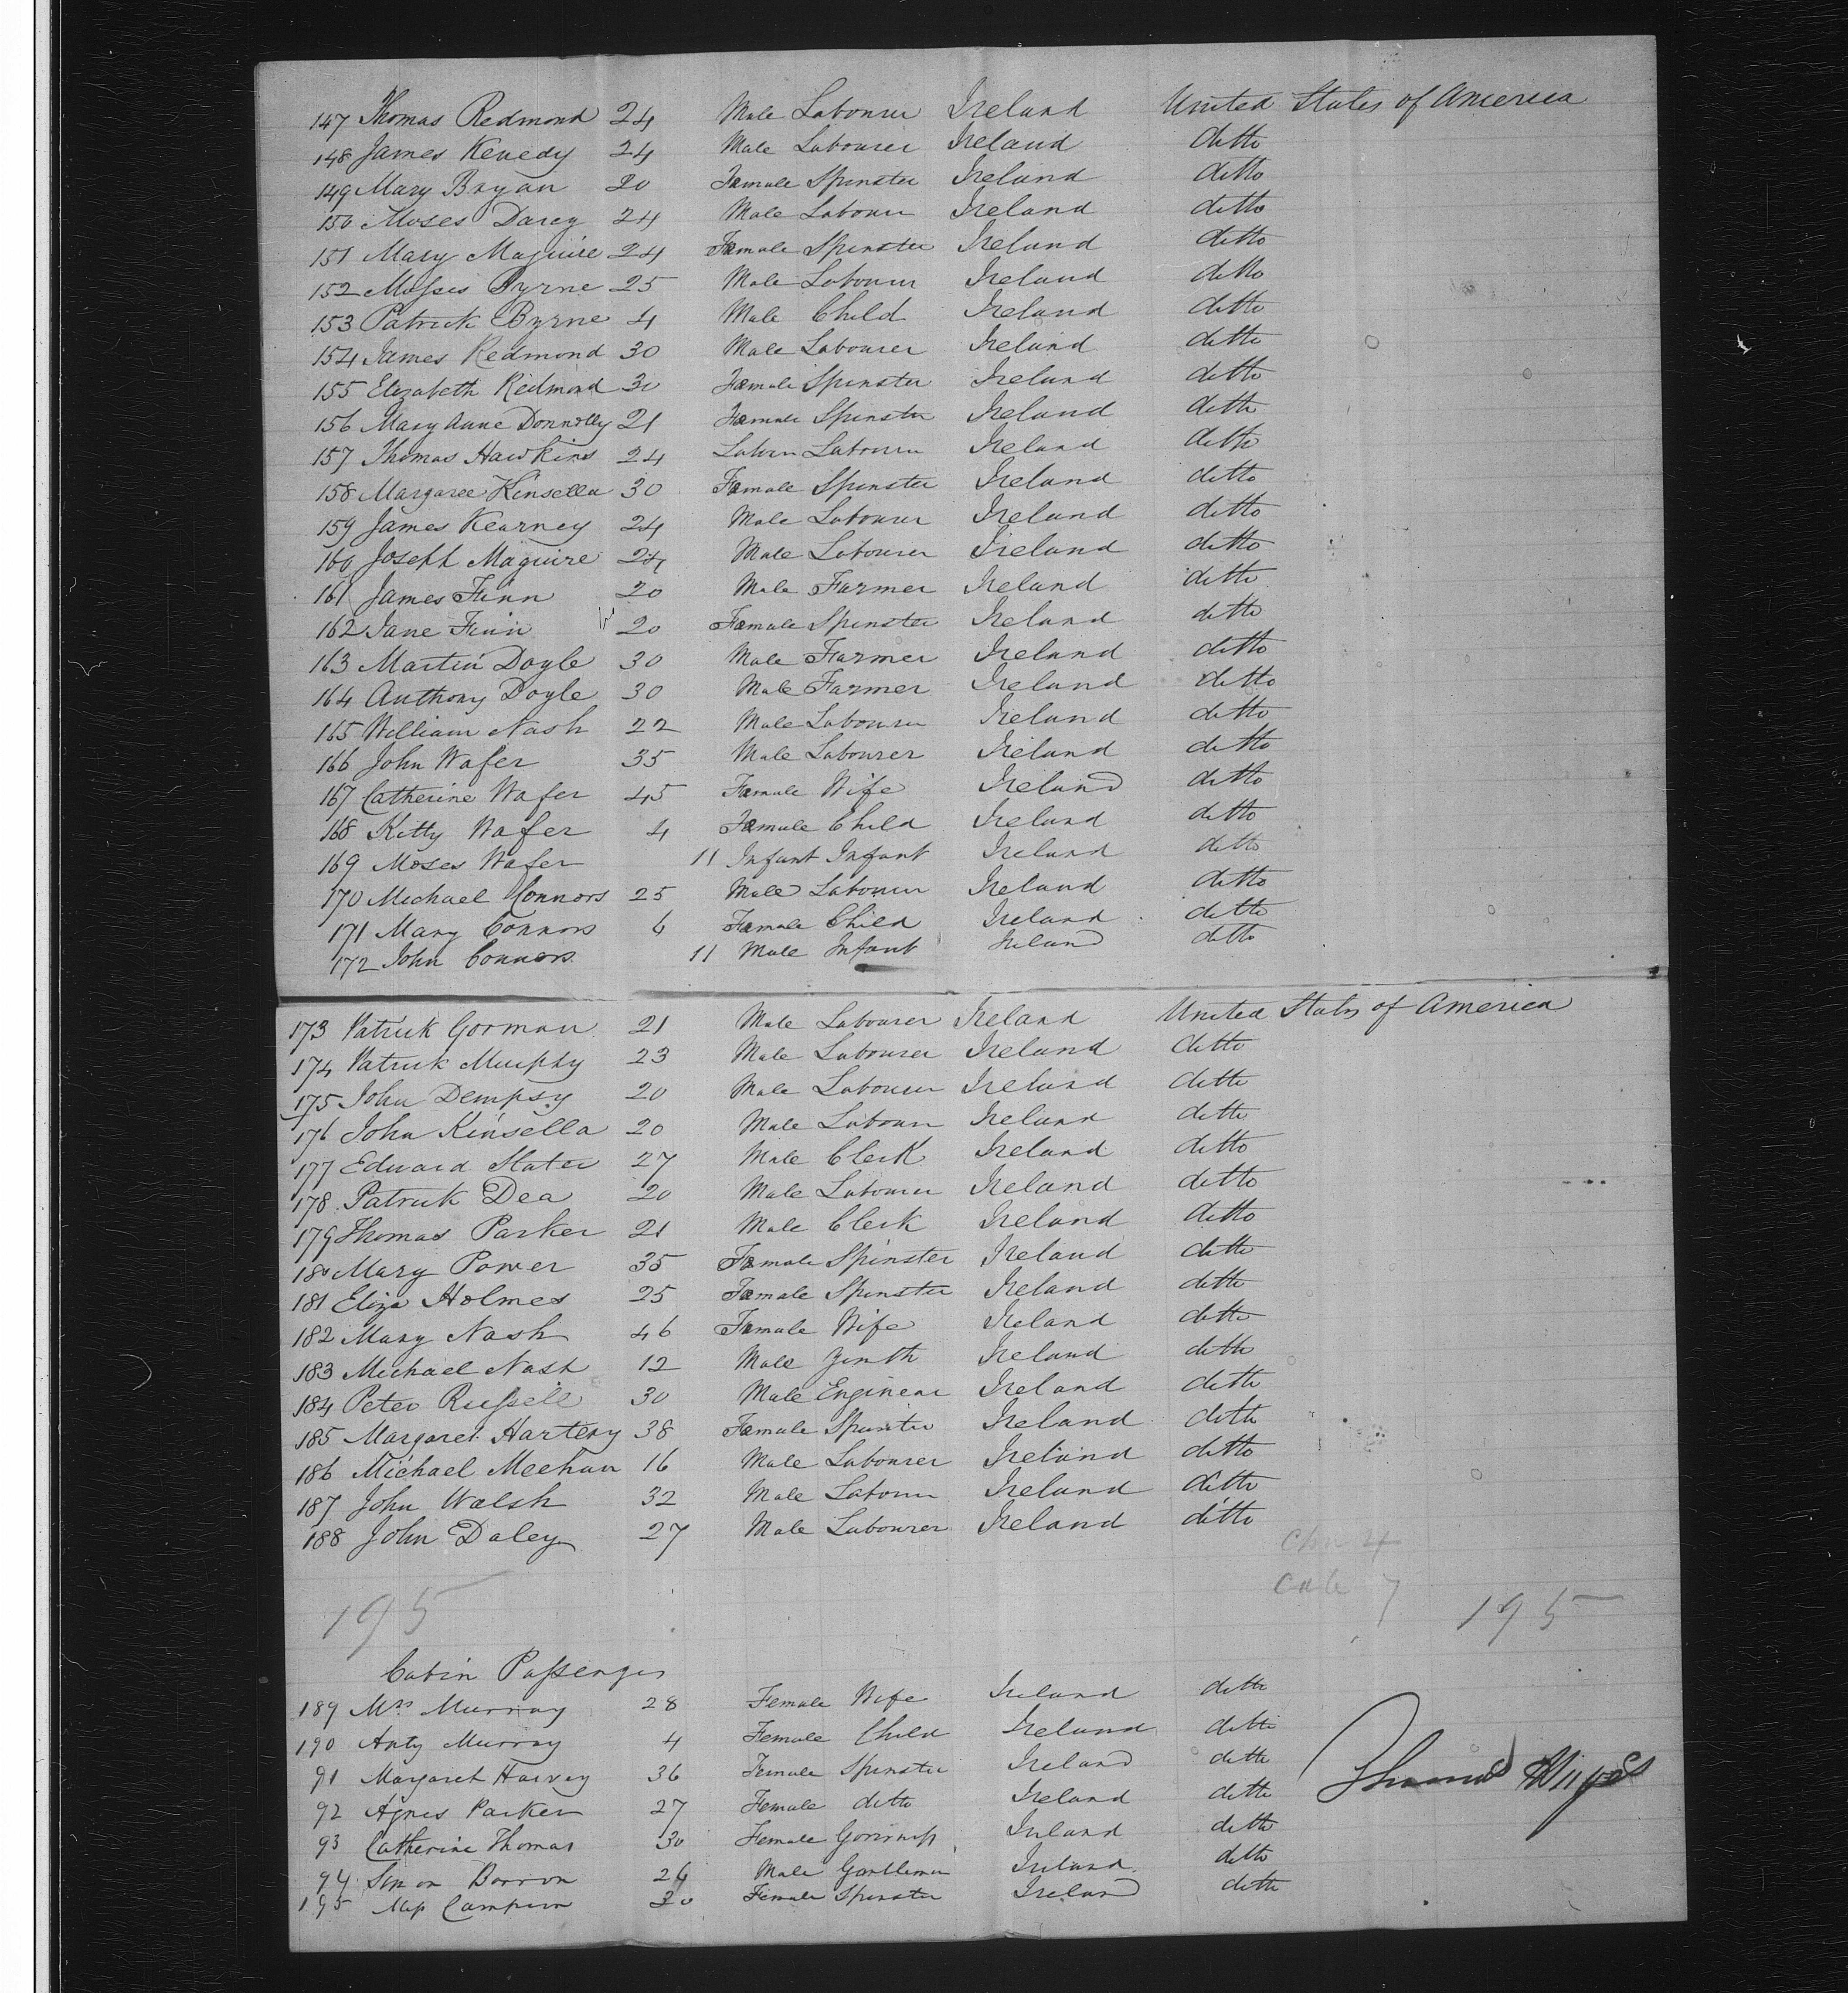 147 Thomas Redmond 24 Male Labourer Ireland United States of America
148 James Kenedy 24 Male Labourer Ireland ditto
149 Mary Bryan 20 Female Spinster Ireland ditto
150 Moses Darcy 24 Male Labourer Ireland ditto
151 Mary Maguire 24 Female Spinster Ireland ditto
152 Moses Byrne 25 Male Labourer Ireland ditto
153 Patrick Byrne 4 Male Child Ireland ditto
154 James Redmond 30 Male Labourer Ireland ditto
155 Elizabeth Redmond 30 Female Spinster Ireland ditto
156 Mary Anne Donnolly 21 Female Spinster Ireland ditto
157 Thomas Hawkins 24 Labourer Ireland ditto
158 Margaret Kinsella 30 Female Spinster Ireland ditto
159 James Kearney 24 Male Labourer Ireland ditto
160 Joseph Maguire 24 Male Labourer Ireland ditto
161 James Finn 20 Male Farmer Ireland ditto
162 Jane Finn 20 Female Spinster Ireland ditto
163 Martin Doyle 30 Male Farmer Ireland ditto
164 Anthony Doyle 30 Male Farmer Ireland ditto
165 William Nash 22 Male Labourer Ireland ditto
166 John Wafer 35 Male Labourer Ireland ditto
167 Catherine Wafer 45 Female Wife Ireland ditto
168 Kitty Wafer 4 Female Child Ireland ditto
169 Moses Wafer 11 Infant Infant Ireland ditto
170 Michael Connors 25 Male Labourer Ireland ditto
171 Mary Connors 6 Female Child Ireland ditto
172 John Connors 11 Male Infant Ireland ditto
173 Patrick Gorman 21 Male Labourer Ireland United States of America
174 Patrick Murphy 23 Male Labourer Ireland ditto
175 John Dempsy 20 Male Labourer Ireland ditto
176 John Kinsella 20 Male Labourer Ireland ditto
177 Edward Slater 27 Male Clerk Ireland ditto
178 Patrick Dea 20 Male Labourer Ireland ditto
179 Thomas Parker 21 Male Clerk Ireland ditto
180 Mary Power 35 Female Spinster Ireland ditto
181 Eliza Holmes 25 Female Spinster Ireland ditto
182 Mary Nash 46 Female Wife Ireland ditto
183 Michael Nash 12 Male Youth Ireland ditto
184 Peter Russell 30 Male Engineer Ireland ditto
185 Margaret Hartery 38 Female Spinster Ireland ditto
186 Michael Meehan 16 Male Labourer Ireland ditto
187 John Walsh 32 Male Labourer Ireland ditto
188 John Daley 27 Male Labourer Ireland ditto
4
7
195 195
Cabin Passengers
189 Mrs Murray 28 Female Wife Ireland ditto
190 Murray 4 Female Child Ireland ditto
91 Margaret Harvey 36 Female Spinster Ireland ditto
92 Agnes Parker 27 Female ditto Ireland ditto
93 Catherine Thomas 30 Female Governess Ireland ditto
94 Simon Barron 26 Male Gentleman Ireland ditto
195 Miss 30 Female Spinster Ireland ditto